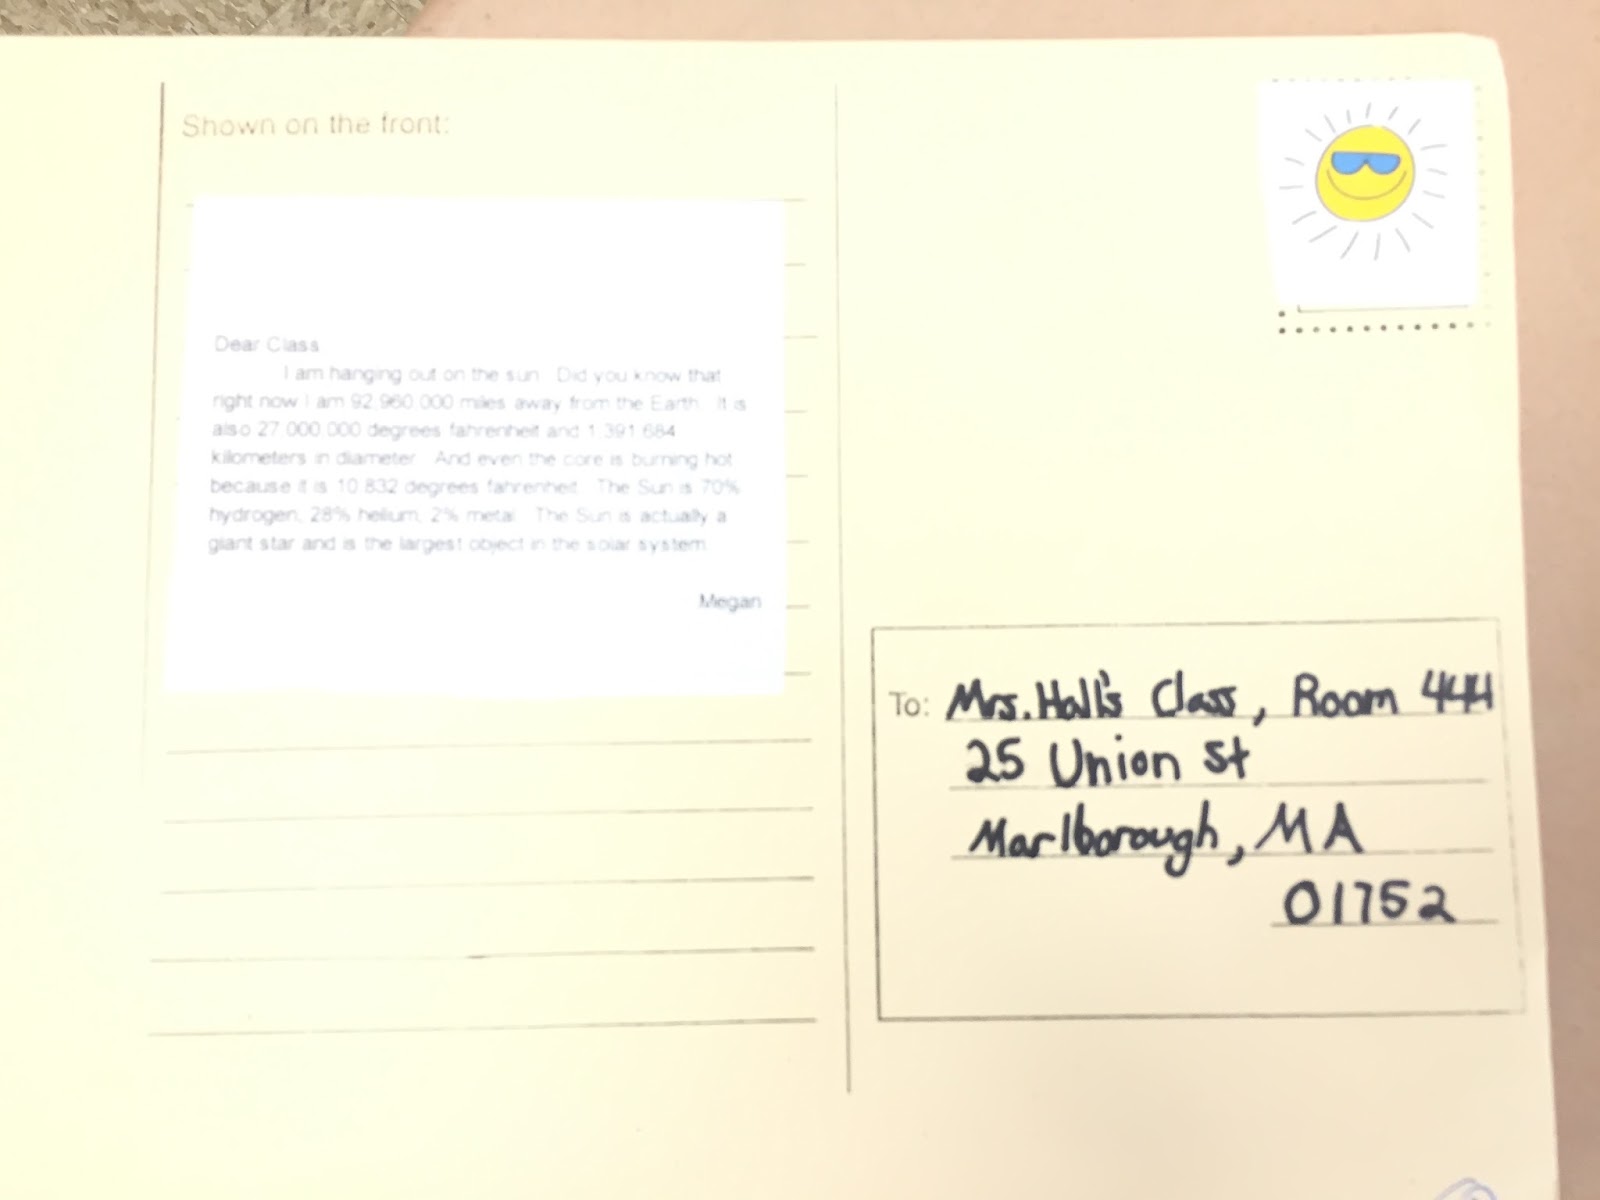 Shown on the front:
Dear Class
I am hanging out on the sun. Did you know that
right now I am 92,960,000 miles away from the Earth. It is
also 27,000,000 degrees fahrenheit and 1,391,684
kilometers in diameter. And even the core is burning hot
because it is 10,832 degrees fahrenheit. The Sun is 70%
hydrogen, 28% helium, 2% metal. The Sun is actually a
giant star and is the largest object in the solar system.
Megan
To: Mrs. Hall's Class, Room 444
25 Union St
Marlborough, MA
01752